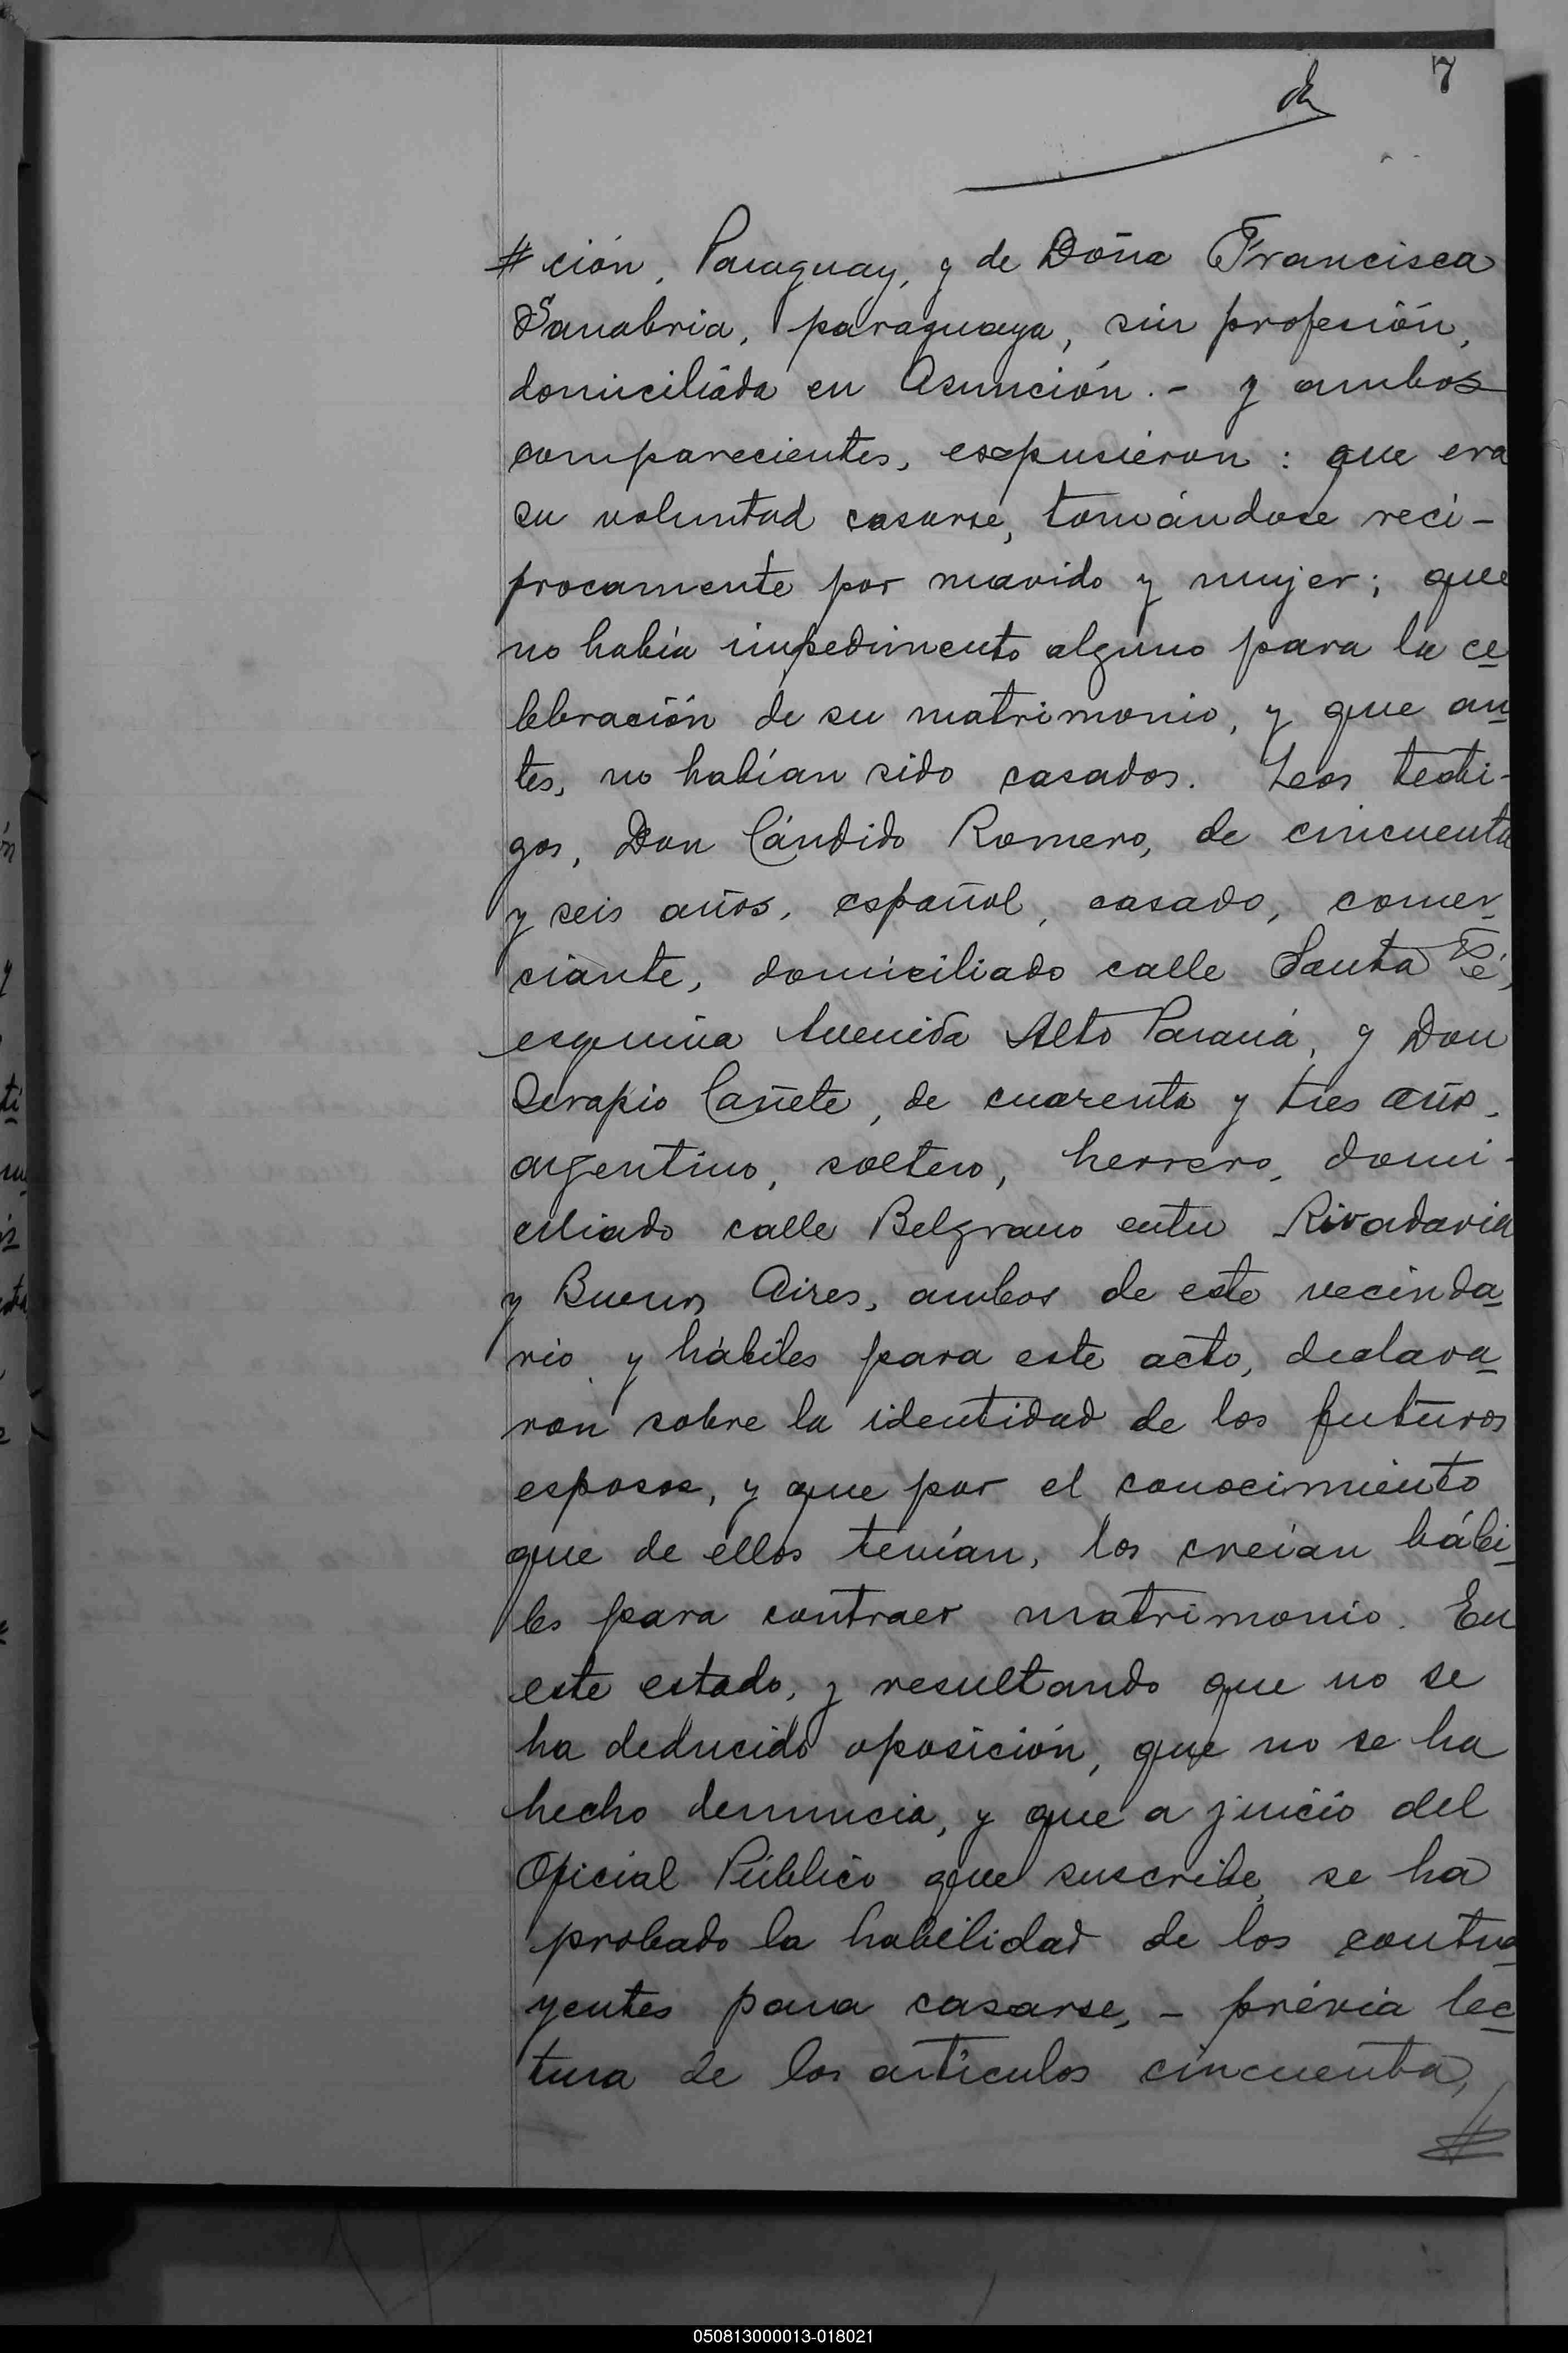 7
# ción, Paraguay, y de Doña Francisca
Sanabria, paraguaya, sin profesión,
domiciliada en Asunción.- y ambos
comparecientes, expusieron: que era
su voluntad casarse, tomándose reci-
procamente por marido y mujer; que
no había impedimento alguno para la ce
lebración de su matrimonio, y que an
tes, no habían sido casados. Los testi-
gos, Don Cándido Romero, de cincuenta
y seis años, español, casado, comer
ciante, domiciliado calle Santa Fé,
esquina Avenida Alto Paraná, y Don
Serapio Cañete, de cuarenta y tres años,
argentino, soltero, herrero, domi-
ciliado calle Belgrano entre Rivadavia
y Buenos Aires, ambos de este vecinda
rio y hábiles para este acto, declara
ron sobre la identidad de los futuros
esposos, y que por el conocimiento
que de ellos tenían, los creían hábi
les para contraer matrimonio. En
este estado, y resultando que no se
ha deducido oposición, que no se ha
hecho denuncia, y que a juicio del
Oficial Público que suscribe, se ha
probado la habilidad de los contra
yentes para casarse, - prévia lec
tura de los artículos cincuenta,
#
050813000013-018021